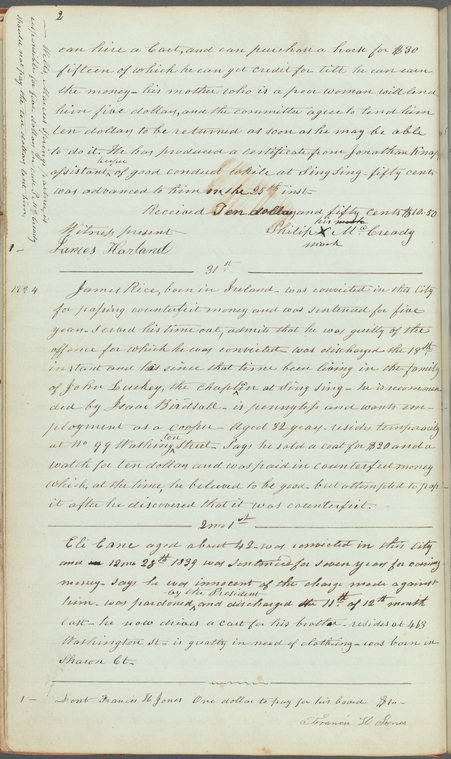 2
can hire a Cart, and can purchase a horse for $30
fifteen of which he can get credit for till he can earn
the money – his mother who is a poor woman will lend
him five dollars, and the committee agree to lend him
ten dollars to be returned as soon as he may be able
to do it. He has produced a certificate from Jonathan Knapp
keeper
assistant, of good conduct while at Sing Sing – fifty cents
was advanced to him on the 25th inst –
Received Ten dollars and fifty cents $10.50
Witness present – his
Philip X McCready
1 – James Harland mark
31st
No 4 James Rice, born in Ireland was convicted in this City
for passing counterfeit money and was sentenced for five
years. Served his time out, admits that he was guilty of the
offence for which he was convicted was discharged the 18th
instant and has since that time been living in the family
of John Luckey, the chaplin at Sing Sing – he is recommen
ded by Isaac Birdsall – is pennyless and wants em-
ployment as a cooper – aged 32 years – resides temporarily
at No 99 Washington Street – Says he sold a coat for $20 and a
watch for ten dollars and was paid in counterfeit money
which, at the time, he believed to be good – but attempted to pass
it after he discovered that it was counterfeit.
2mo 1st
Eli Cane aged about 42 – was convicted in this City
and in 12mo 28th 1839 was sentenced for seven years for coining
money – says he was innocent of the charge made against
by the President
him. was pardoned, and discharged the 11th of 12th month
last – he now drives a cart for his brother – resides at 413
Washington St – is greatly in need of clothing – was born in
Sharon Ct.
1 – Lent Francis H Jones One dollar to pay for his board $1 –
Francis H Jones